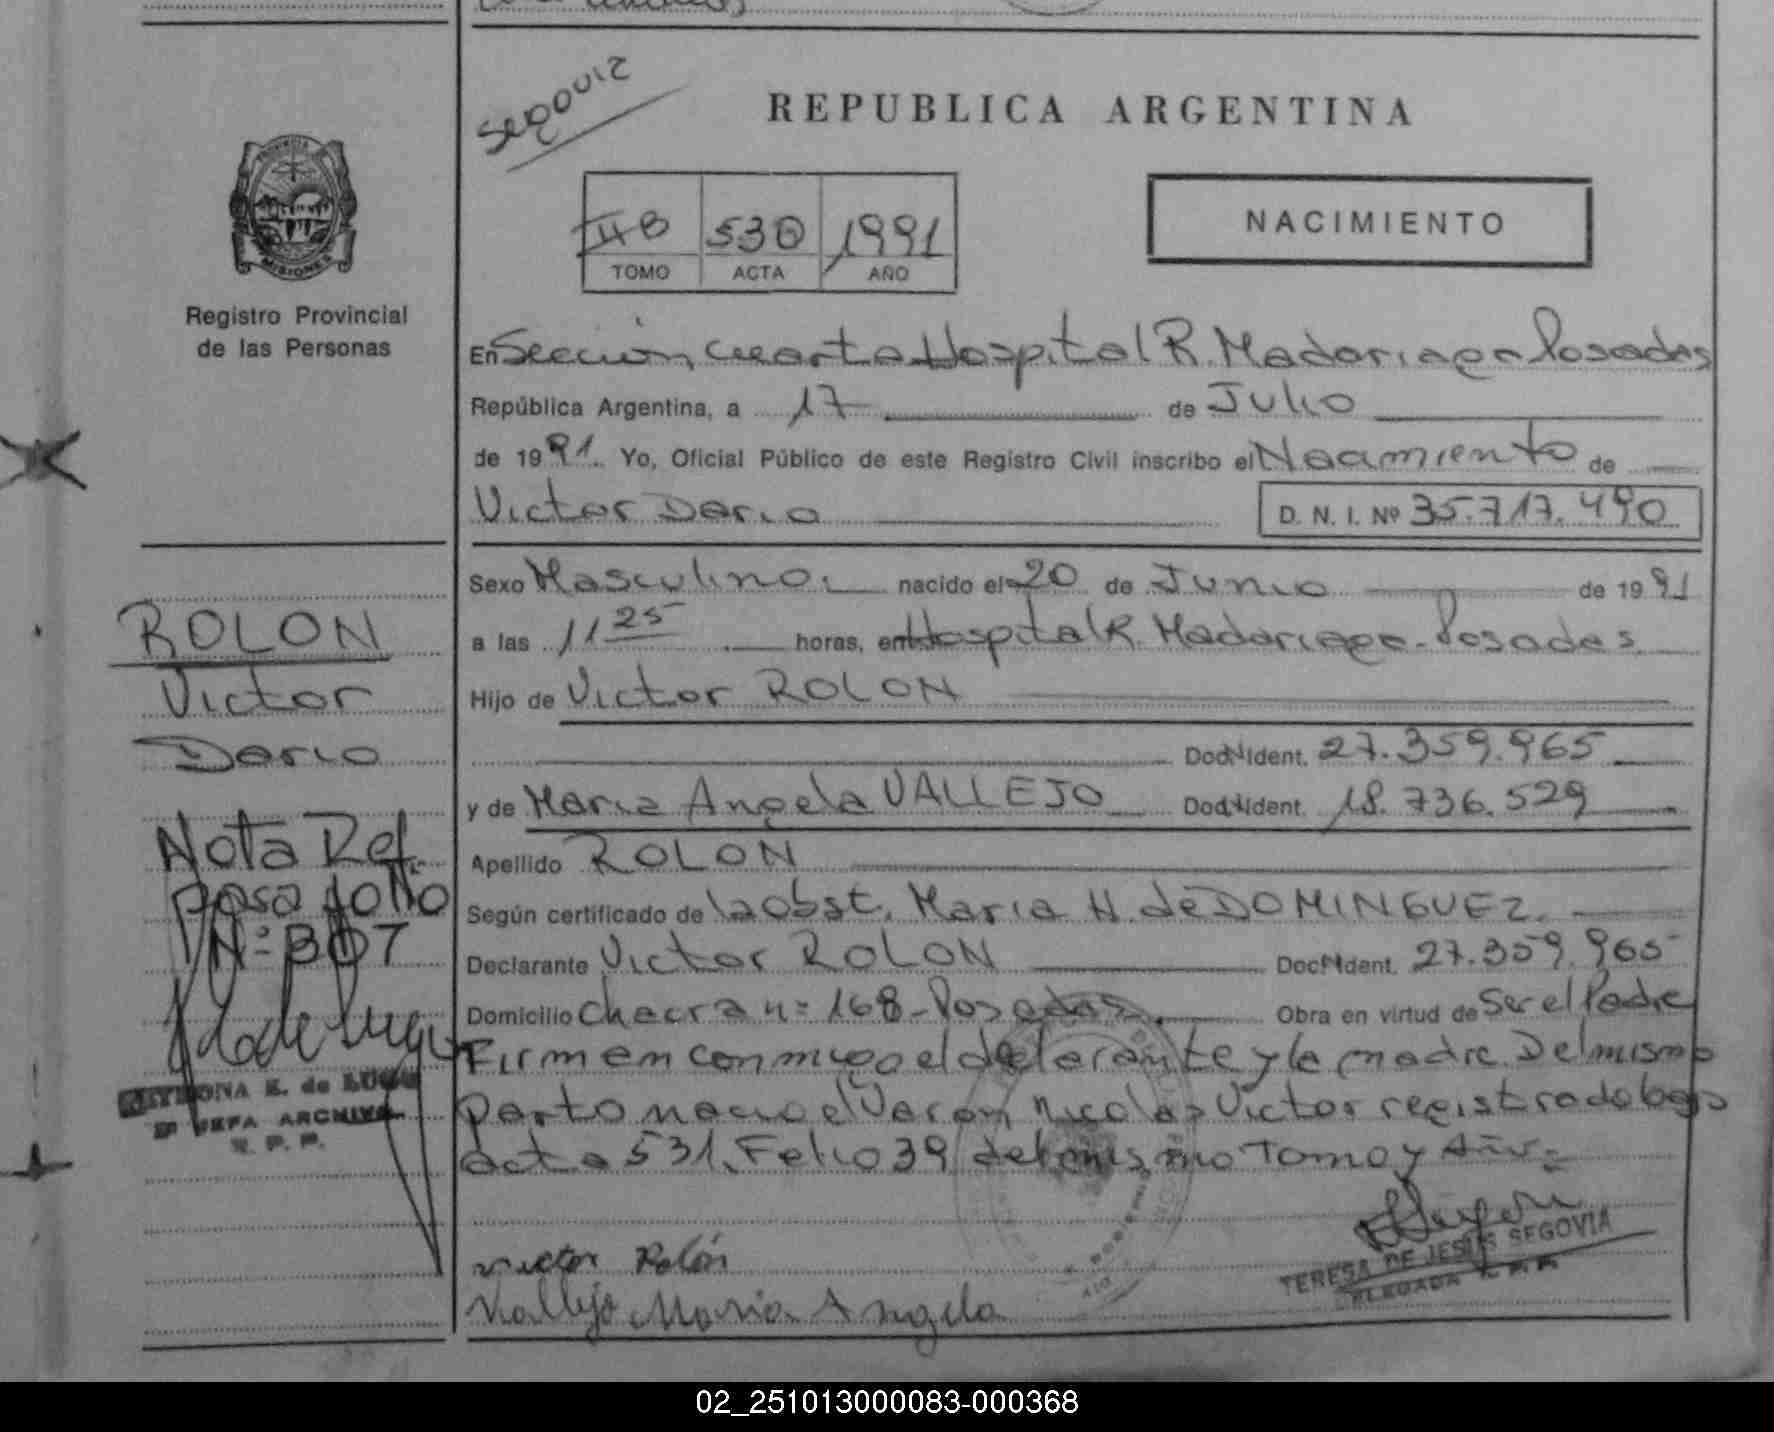 SEQUIZ
REPUBLICA ARGENTINA
II B 530 1991
TOMO ACTA AÑO
NACIMIENTO
PROVINCIA
MISIONES
Registro Provincial
de las Personas
En Sección Cuarta Hospital R. Madariaga Posadas
República Argentina, a 17 de Julio
de 1991. Yo, Oficial Público de este Registro Civil inscribo el Nacimiento de
Victor Dario D. N. I. Nº 35.717.490
Sexo Masculino. nacido el 20 de Junio de 1991
a las 11 25 horas, en Hospital R. Madariaga - Posadas.
Hijo de Victor ROLON
Doc. Ident. 27.359.965
y de Maria Angela VALLEJO Doc. Ident. 18.736.529
Apellido ROLON
Según certificado de la Obst. Maria H. de DOMINGUEZ.
Declarante Victor ROLON Doc. Ident. 27.359.965
Domicilio Chacra nº 168 - Posadas. Obra en virtud de Ser el Padre
Firman conmigo el declarante y la madre. Del mismo
parto nacio el Varon, Nicolas Victor registrado bajo
acta 531, Folio 39 del mismo Tomo y Año.-
Victor Rolón
Vallejo Maria Angela
TERESA DE JESUS SEGOVIA
DELEGADA R. P. P.
ROLON
Victor
Dario
Nota Ref.
pasa folio
Nº 307
E. de LUGO
JEFA ARCHIVO
R. P. P.
02_251013000083-000368